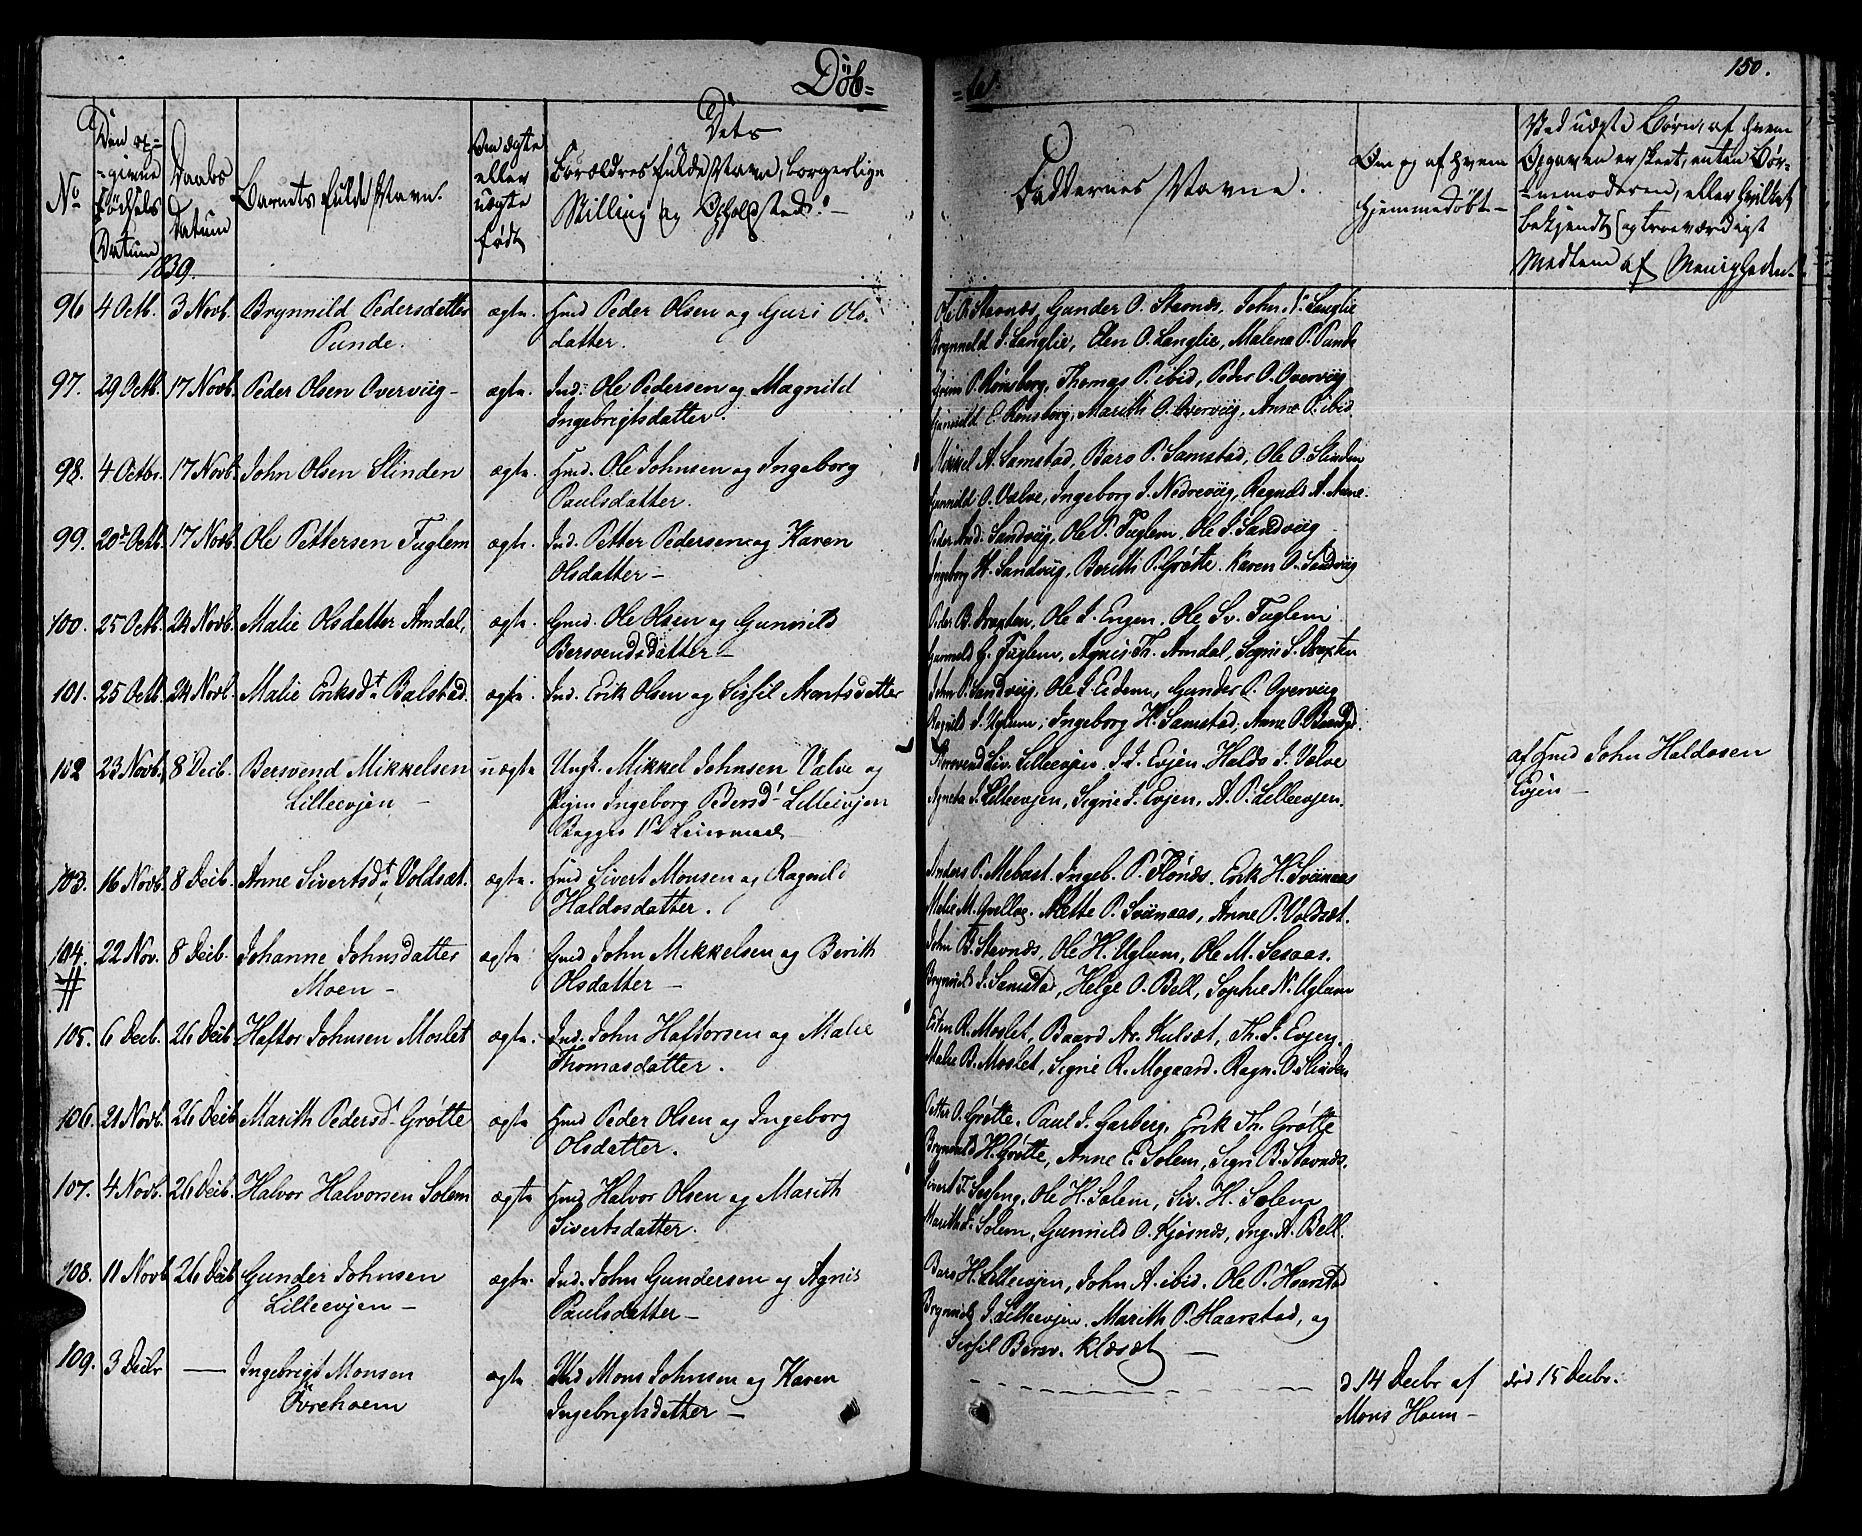 Döb=
=te.
150.
No
Den op=
=givne
Födsels
Datum
Daabs
Datum
Barnets fulde Navn.
Om ægte
eller
uægte
født
Dets
Forældres fulde Navne, borgerlige
Stilling og Opholdsted.
Faddernes Navne.
Om og af hvem
hjemmedöbt
Ved uægte Börn, af hvem
Opgaven er skeet, enten Bör-
nemoderen, eller hvilket
bekjendt og troeværdigt
Medlem af Menigheden.
1839.
96 4 Octb. 3 Novb. Brynnild Pedersdatter ægte. Gmd Peder Olsen og Guri Ols-
Punde. datter.
Ole O. Stavnæs, Gunder O. Stavnæs, John Langlie
Brynneld J. Langlie, Elen O. Langlie, Malena P. Punde
97. 29 Octb. 17 Novb. Peder Olsen Overviig - ægte. Ind: Ole Pedersen og Magnild
Ingebrigtsdatter.
P. Rönsberg, Thomas P. ibid, Peder O. Overviig
Gunnild E. Rönsberg, Marith O. Overviig, Anne P. ibid
98. 4 Octbr. 17 Novb. John Olsen Slinden ægte. Gmd. Ole Johnsen og Ingeborg
Paulsdatter.
Mikkel A. Samstad, Baro P. Samstad, Ole O. Slinden
Gunnild O. Valve, Ingeborg J. Nedreviig, Ragnild A.
99. 20de Octb. 17 Novb. Ole Pettersen Fuglem ægte. Ind. Petter Pedersen og Karen
Olsdatter -
Peder And. Sandviig, Ole P. Fuglem, Ole S. Sandviig
Ingeborg H. Sandviig, Berith P. Grötte. Karen O. Sandviig
100. 25 Octb. 24 Novb. Malie Olsdatter Amdal, ægte. Gmd. Ole Olsen og Gunnild
Bersvendsdatter -
Peder B. Draxten, Ole J. Engen, Ole Sv. Fuglem
Gunneld G. Fuglem, Agnis Th. Amdal, Sigrie S. Draxten
101. 25 Octb. 24 Novb. Malie Eriksdtr Balstad. ægte. Ind. Erik Olsen og Sissil Arentsdatter
John P. Sandviig, Ole J. Eidem, Gunder P. Overviig
Ragnild J. Uglum, Ingeborg H. Samstad, Anne O.
102 23 Novb. 8 Decb. Bersvend Mikkelsen uægte Ungk. Mikkel Johnsen Valve og
Lilleevjen - Pigen Ingeborg Pedersd. Lilleevjen
Begges 1ste Leiermaal
Bersvend Siv. Lilleevjen. J. J. Evjen. Haldo J. Valve
Agneta J. Lilleevjen, Sigrie J. Evjen, A. P. Lilleevjen.
af Gmd John Haldosen
Evjen -
103. 16 Novb. 8 Decb. Anne Sivertsdtr Voldsæt. ægte. Gmd Sivert Monsen og Ragnild
Haldosdatter.
Anders P. Mebast. Ingeb. P. Flönæs. Erik H. Sviinaas
Malie M. Qvello. Mette P. Sviinaas, Anne P. Voldsæt.
104. 22 Nov. 8 Decb. Johanne Johnsdatter ægte Gmd John Mikkelsen og Berith
# Moen - Olsdatter -
John B. Stavnæs, Ole H. Uglum, Ole M. Sesaas.
Brynnild J. Samstad, Helge O. Bell, Sophie N. Uglum
105. 6 Decb. 26 Decb. Haftor Johnsen Moslet ægte. Ind. John Haftorsen og Malie
Thomasdatter.
Esten R. Moslet, Baard Ar. Kulsæt, Th. J. Evjen,
Malie B. Moslet, Signe R. Mogaard. Ragn. O. Slinden
106. 21 Novb. 26 Decb. Marith Pedersd. Grötte ægte Gmd Peder Olsen og Ingeborg
Olsdatter.
Petter O. Grötte. Paul J. Garberg, Erik Th. Grötte
Brynnild H. Grötte, Anne E. Solem, Sigri B. Stavnæs.
107. 4 Novb. 26 Decb. Halvor Halvorsen Solem ægte Gmd Halvor Olsen og Marith
Sivertsdatter.
Sivert T. Sesseng, Ole H. Solem, Siv. H. Solem
Marith Solem, Gunnild O. Kjösnæs, Ing. A. Bell.
108. 11 Novb 26 Decb Gunder Johnsen ægte. Ind. John Gundersen og Agnis
Lilleevjen - Paulsdatter -
Baro H. Lilleevjen, John A. ibid. Ole P. Haarstad
Brynnild J. Lilleevjen. Marith P. Haarstad, og
Sissil Bersv. Klæsæt -
109. 3 Decbr - Ingebrigt Monsen ægte Mons Johnsen og Karen
Övrehoem Ingebrigtsdatter -
d 14 Decbr af
Mons Hoem -
död 15 Decbr.